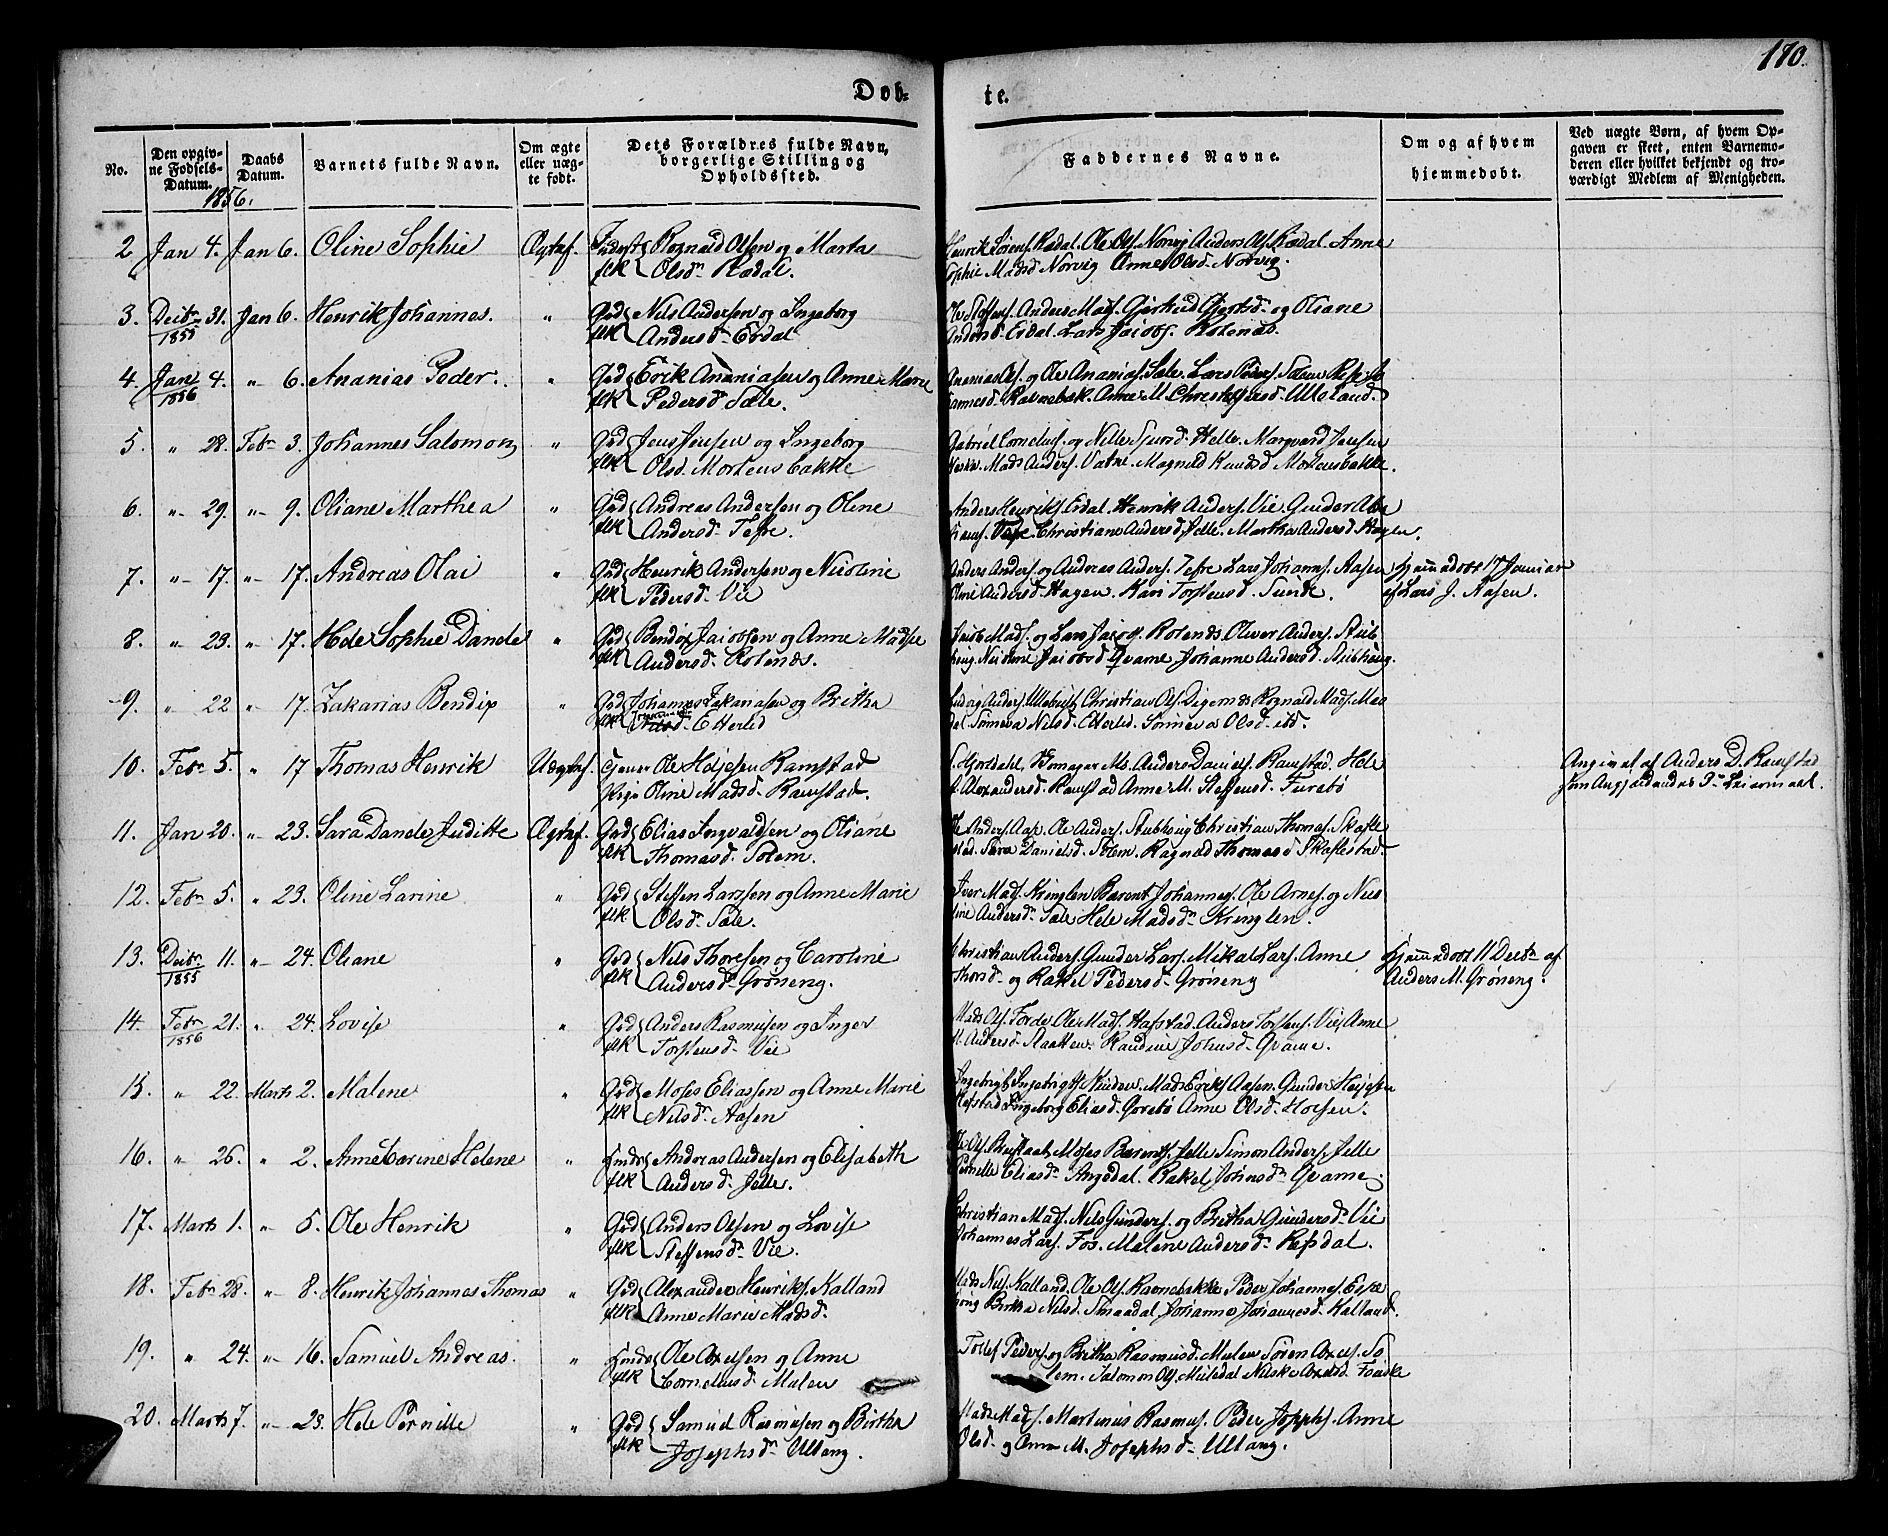 170.
Døb-
te.
No.
Den opgivne Fødsels-Datum.
Daabs Datum.
Barnets fulde Navn.
Om ægte eller uægte født.
Dets Forældres fulde Navn, borgerlige Stilling og Opholdssted.
Faddernes Navne.
Om og af hvem hjemmedøbt.
Ved uægte Børn, af hvem Opgaven er skeet, enten Barnemoderen eller hvilket bekjendt og troværdigt Medlem af Menigheden.
1856.
2 Jan 4. Jan 6. Oline Sophie Ægtef. Rognald Olsen og Marta
Olsdr Rødal.
Henrik Sørens. Rødal. Ole Ols. Norvig Anders Ols. Rødal. Anne
Sophie Madsd Norvig Anne Olsd. Norvig.
3. Decbr 31. Jan 6. Henrik Johannes. " Grd Nils Andersen og Ingeborg
1855 flk Andersd Erdal
Ole Steffens. Anders Mads. Gjertrud Gjertsd. og Oliane
Andersd Erdal. Lars Jacobs. Rotenæs.
4. Jan 4. " 6. Ananias Peder. " Grd Erik Ananiasen og Anne Marie
1856 flk Pedersdr Sæle.
Ananias Ols. og Ole Ananias. Sæle. Lars Peders. Solem
Ravnebak. Anne M. Christophersd. Ulleland.
5. " 28. Febr 3. Johannes Salomon " Grd Jens Jensen og Ingeborg
flk Olsd. Mortensbakke
Gabriel Cornelius. og Nille Sjursd. Helle. Marqvard Jensen
Mads Anders. Vatne. Magnild Knudsd Mortensbakke.
6. " 29. " 9. Oliane Marthea " Grd Andreas Andersen og Oline
flk Andersdr Tefre.
Anders Henriks. Erdal. Henrik Anders. Vie Gunder
Christiane Andersd. Jelle. Martha Andersd. Hagen.
7. " 17. " 17. Andreas Olai " Grd Henrik Andersen og Nicoline
flk Pedersdr Vie
Anders Anders. og Andreas Anders. Tefre Lars Johanns. Aasen
Oline Andersd. Hagen. Kari Torstensd. Sunde.
Hjemmedøbt 17 Januar
af Lars J. Aasen.
8. " 23. " 17. Hele Sophie Danele " Grd Bendix Jacobsen og Anne Madsie
flk Andersd. Rotenæs.
Jacob Mads. og Lars Jacobs. Rotenæs. Oliver Anders. Stub-
houg. Nicoline Jacobsd Qvame Johanne Andersd. Stubhoug.
9. " 22 " 17. Zakarias Bendix " Grd Johannes Zakariasen og Britha
flk Etterlid
Ludvig Anders. Ullebust Christian Ols. Digernes Rognald Mads.
Sønneva Nilsd. Etterlid. Sønneva Olsd. ibd.
10. Febr 5. " 17 Thomas Henrik Uægtef. Tjener Ole Helgesen Ramstad
Pige Oline Madsd. Ramstad.
Anders Daniels. Ramstad. Hele
Alexandersd. Ramstad Anne M. Steffensd. Furebø
Angivet af Anders D. Ramstad
som Angjældendes 3die Leiermaal.
11. Jan 20. " 23. Sara Danele Juditte Ægtef. Grd Elias Ingvaldsen og Oliane
flk Thomasd. Solem.
Ole Anders. Aasen. Ole Anders. Stubhoug Christian Thomas. Skafle-
stad. Sara Danielsd. Solem. Ragnild Thomasd Skaflestad.
12. Febr 5. " 23. Oline Larine " Grd Steffen Larssen og Anne Marie
flk Olsd. Sæle.
Iver Mads. Kringlen Barent Johannes. Ole Arnes. og Nico-
line Andersd. Sæle Hele Madsdr Kringlen.
13. Decbr. 11. " 24. Oliane " Grd Nils Thoresen og Caroline
1855 flk Andersdr Grøneng.
Christian Anders. Gunder Lars. Mikal Lars. Anne
Thorsd. og Rakel Pedersd. Grøneng
Hjemmedøbt 11 Decbr af
Anders M. Grøneng.
14. Febr 21. " 24. Lovise " Grd Anders Rasmusen og Inger
1856 flk Torstensd. Vie
Mads Ols. Førde Ole Mads. Hafstad. Anders Torstens. Vie, Anne
M. Andersd. Slaatten. Randine Johnsd. Qvame.
15. " 22. Marts 2. Malene " Grd Moses Eliassen og Anne Marie
flk Nilsdr Aasen
Ingebrigt Ingebrigts. Mads Eriks. Aasen. Gunder Helgesen
Hafstad Ingeborg Eliasd. Gorebø Anne Olsd. Holsen.
16. " 26. " 2. Anne Carine Helene " Andreas Andersen og Elisabeth
flk Andersdr Jelle.
Ole Ols. Moses Barents. Jelle Simon Anders. Jelle
Pernille Eliasdr Angedal. Rakel Johnsdr Qvame.
17. Marts 1. " 5. Ole Henrik " Grd Anders Olsen og Lovise
flk Steffensdr Vie.
Christian Mads. Nils Gunders. og Britha Gundersdr Vie
Johannes Lars. Fos. Malene Andersdr Refsdal.
18. Febr 28. " 8. Henrik Johannes Thomas " Grd Alexander Henriks. Kalland
flk Anne Marie Madsdr.
Mads Nils. Kalland. Ole Ols. Ravnebakke Peder Johannes. Espe-
Britha Nilsd. Johanne Johannesd. Kalland.
19. " 24. " 16. Samuel Andreas. " Ole Axelsen og Anne
flk Corneliusd. Malen
Tollef Peders. og Britha Rasmusd. Malen Søren Axels. So-
lem. Salomon Ols. Mieldal
20. Marts 7. " 23. Hele Pernille " Grd Samuel Rasmusen og Birtha
flk Josephsdr Ultang.
Mads Mads. Martinus Rasmus. Peder Josephs. Anne
Olsd. og Anne M. Josephsdr Ultang.